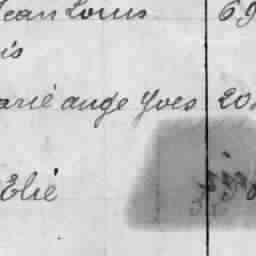 Jean Louis 69
is
arie ange Yves 20
Elie